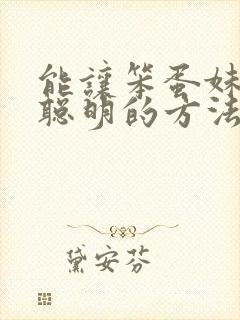 能讓笨蛋妹
聰明的方法
黛安芬